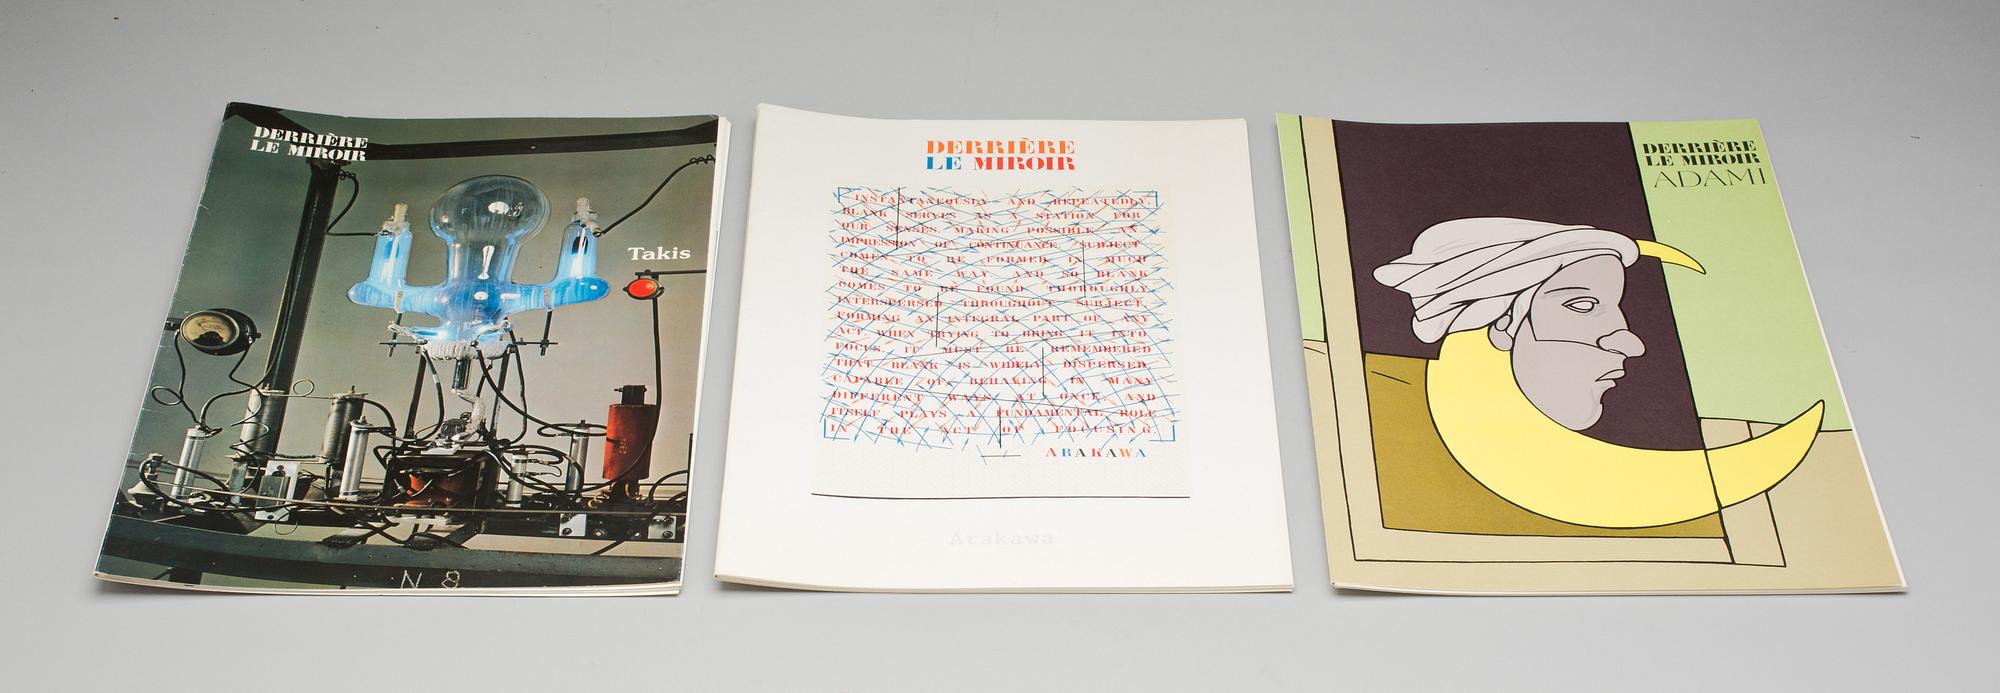 DERRIÈRE
LE MIROIR
Takis
N 8
DERRIÈRE
LE MIROIR
INSTANTANEOUSLY AND REPEATEDLY,
BLANK SERVES AS A STATION FOR
OUR SENSES, MAKING POSSIBLE AN
IMPRESSION OF CONTINUANCE SUBJECT
COMES TO BE FORMED IN MUCH
THE SAME WAY AND SO BLANK
COMES TO BE FOUND THOROUGHLY
INTERSPERSED THROUGHOUT SUBJECT,
FORMING AN INTEGRAL PART OF ANY
ACT WHEN TRYING TO BRING IT INTO
FOCUS. IT MUST BE REMEMBERED
THAT BLANK IS WIDELY DISPERSED,
CAPABLE OF BEHAVING IN MANY
DIFFERENT WAYS AT ONCE AND
ITSELF PLAYS A FUNDAMENTAL ROLE
IN THE ACT OF FOCUSING
ARAKAWA
Arakawa
DERRIÈRE
LE MIROIR
ADAMI